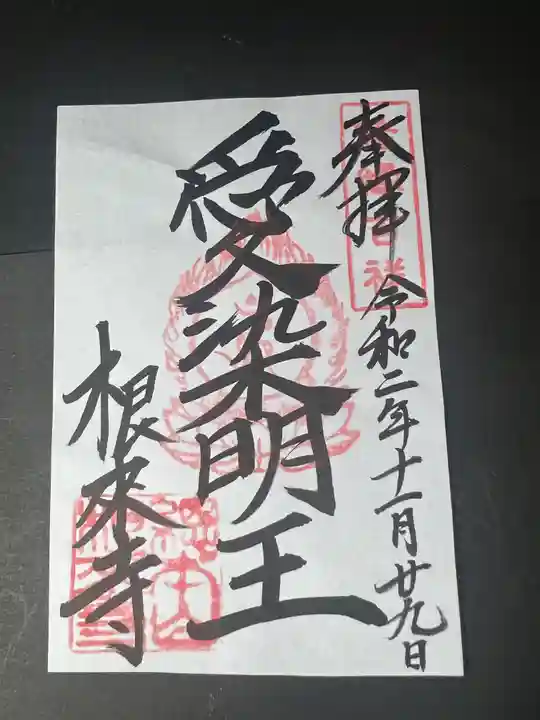 奉拝
令和二年十一月廿九日
愛染明王
根来寺